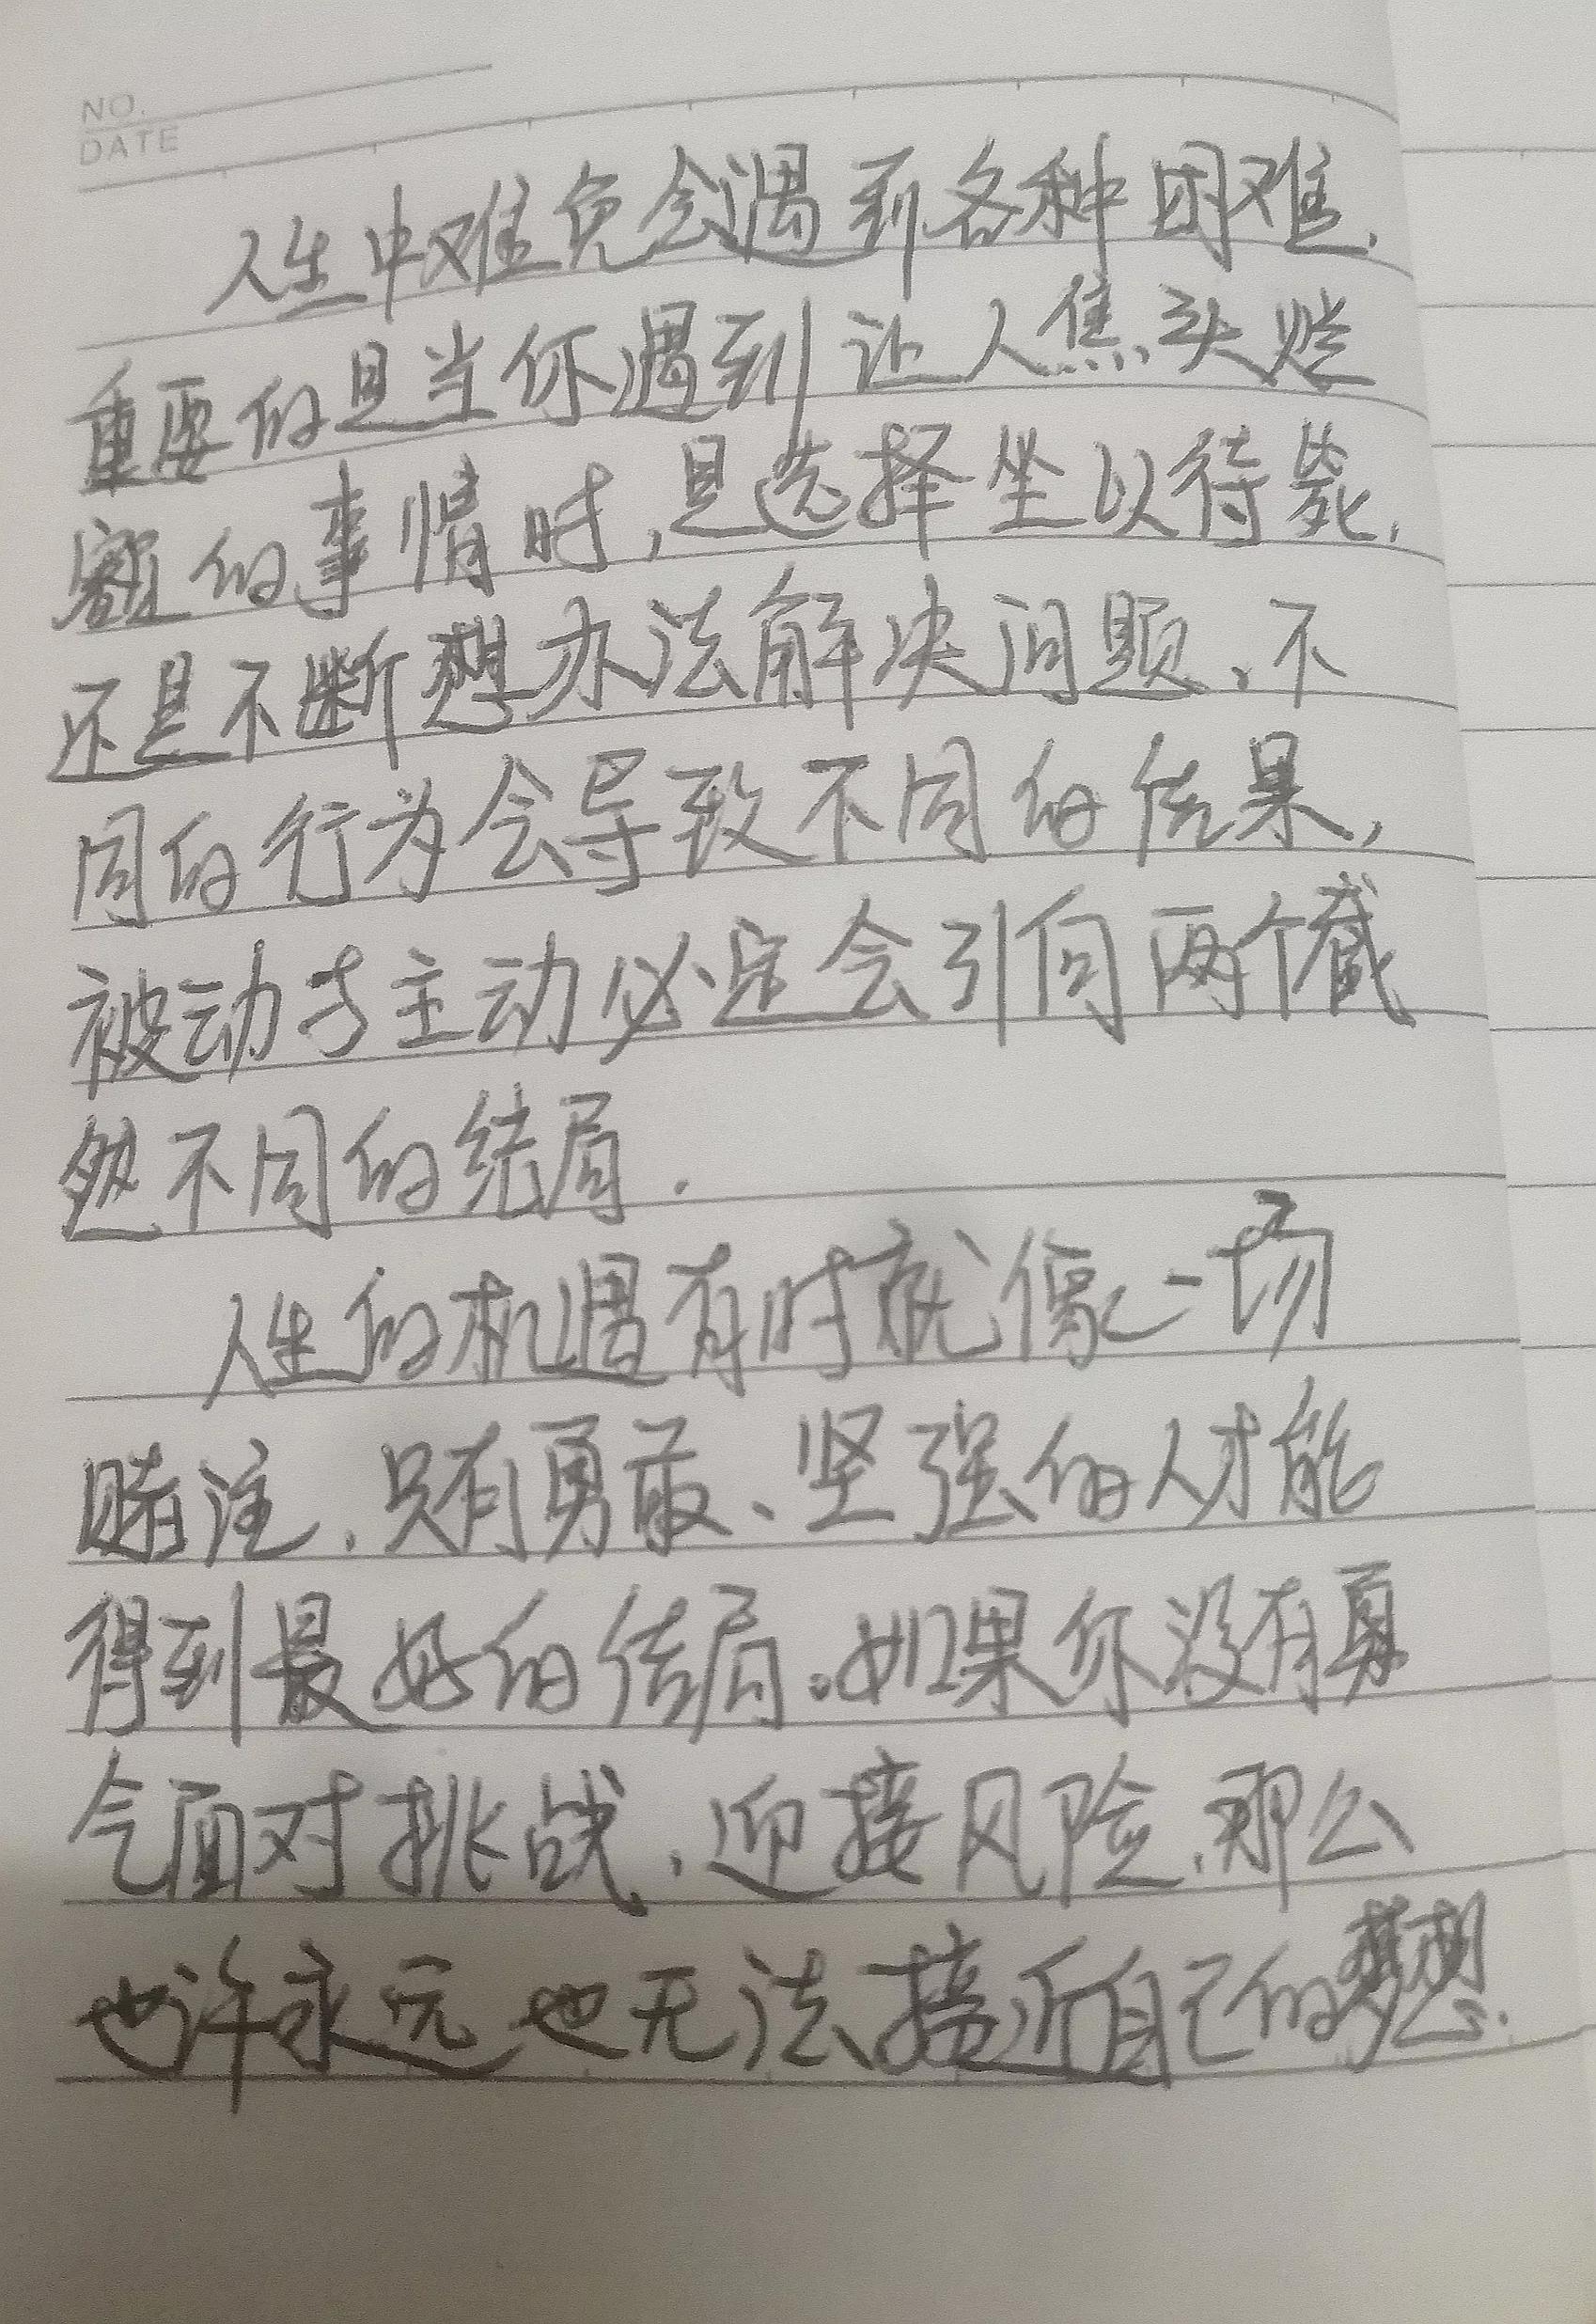 NO.
DATE
人生中难免会遇到各种困难.
重要的是当你遇到让人焦头烂
额的事情时,是选择坐以待毙,
还是不断想办法解决问题.不
同的行为会导致不同的结果,
被动与主动必定会引向两个截
然不同的结局.
人生的机遇有时就像一场
赌注.只有勇敢、坚强的人才能
得到最好的结局。如果你没有勇
气面对挑战.迎接风险.那么
也许永远也无法接近自己的梦想.